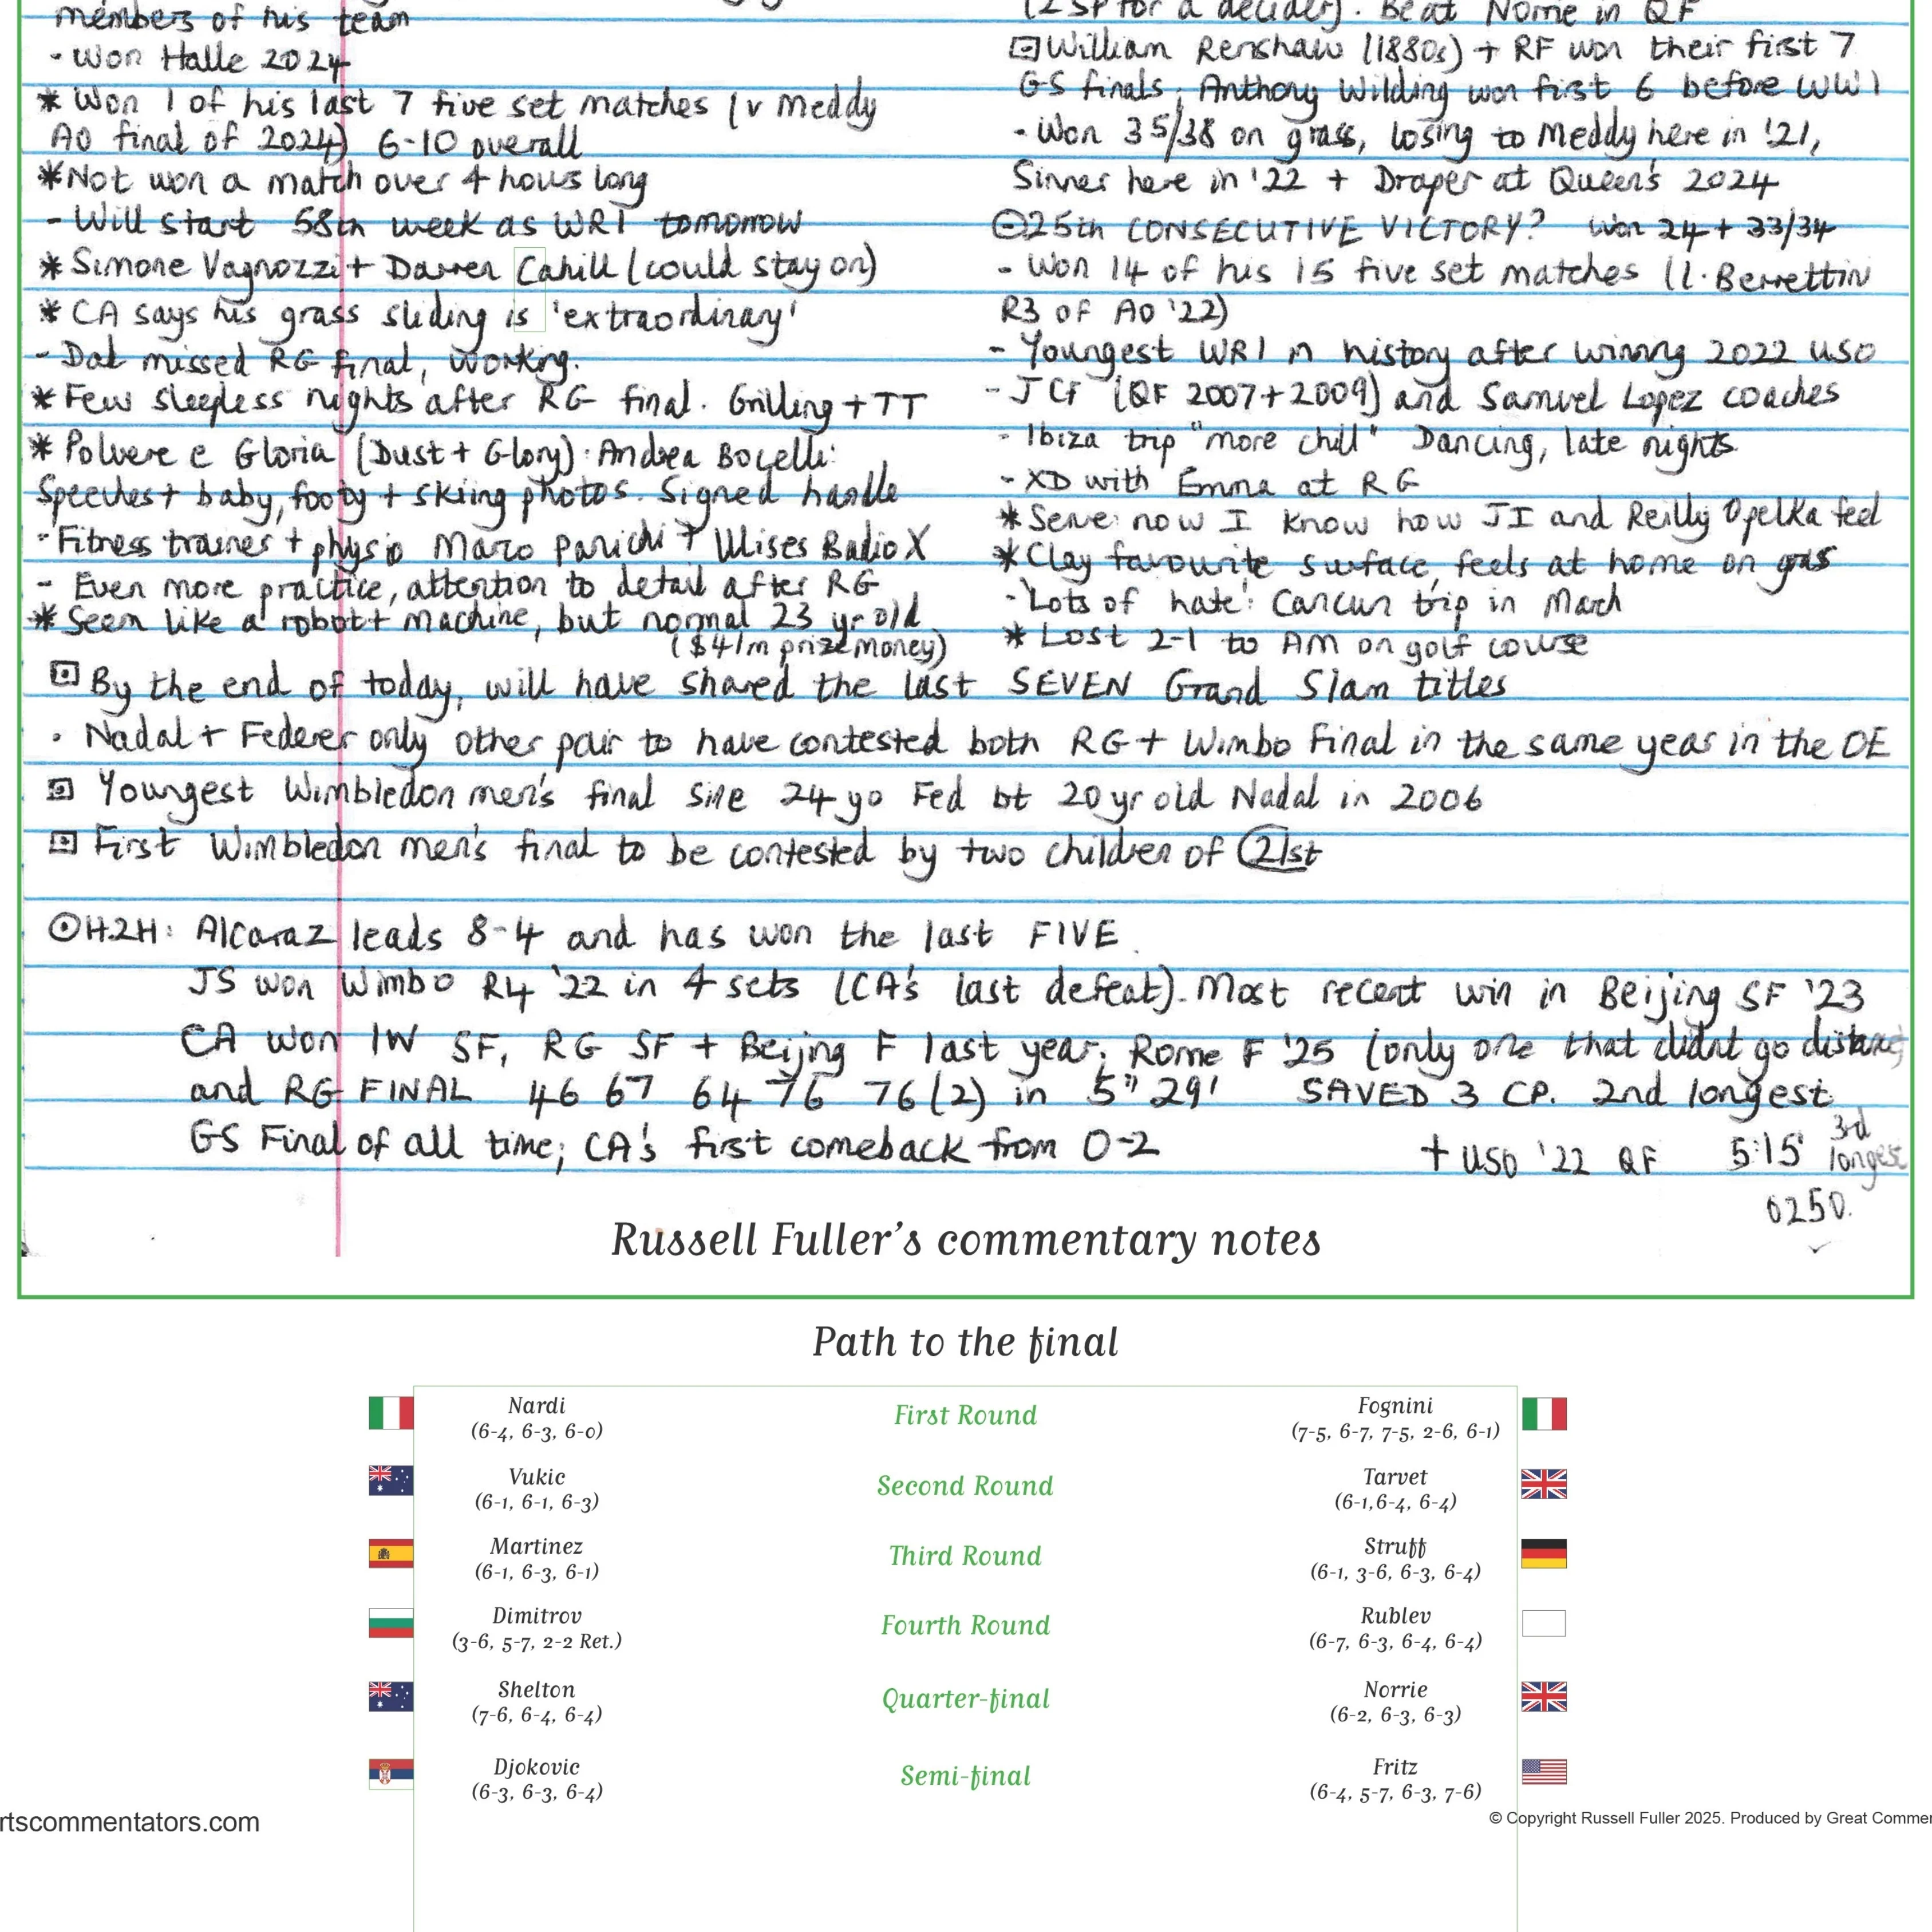 members of his team
- Won Halle 2024
* Won 1 of his last 7 five set matches (v Meddy
AO final of 2024) 6-10 overall
* Not won a match over 4 hours long
- Will start 58th week as WR1 tomorrow
* Simone Vagnozzi + Darren Cahill (could stay on)
* CA says his grass sliding is 'extraordinary'
- Dad missed RG final, working.
* Few sleepless nights after RG final. Grilling + TT
* Polvere e Gloria (Dust + Glory): Andrea Bocelli:
Speeches + baby, footy + skiing photos. Signed handle
- Fitness trainer + physio Marco Panichi + Ulises Badio X
- Even more practice, attention to detail after RG
* Seen like a robot + machine, but normal 23 yr old
($41m prize money)
(2 SP for a decider). Beat Norrie in QF
William Renshaw (1880s) + RF won their first 7
GS finals; Anthony Wilding won first 6 before WW1
- Won 35/38 on grass, losing to Meddy here in '21,
Sinner here in '22 + Draper at Queen's 2024
25th CONSECUTIVE VICTORY? Won 24 + 33/34
- Won 14 of his 15 five set matches (l. Berrettini
R3 of AO '22)
- Youngest WR1 in history after winning 2022 USO
- JCF (QF 2007+2009) and Samuel Lopez coaches
- Ibiza trip "more chill" Dancing, late nights
- XD with Emma at RG
* Serve: now I know how JI and Reilly Opelka feel
* Clay favourite surface, feels at home on grass
- 'Lots of hate': Cancun trip in March
* Lost 2-1 to AM on golf course
By the end of today, will have shared the last SEVEN Grand Slam titles
· Nadal + Federer only other pair to have contested both RG + Wimbo Final in the same year in the OE
Youngest Wimbledon men's final since 24 yo Fed bt 20 yr old Nadal in 2006
First Wimbledon men's final to be contested by two children of 21st
H2H: Alcaraz leads 8-4 and has won the last FIVE.
JS won Wimbo R4 '22 in 4 sets (CA's last defeat). Most recent win in Beijing SF '23
CA won IW SF, RG SF + Beijing F last year; Rome F '25 (only one that didnt go distance)
and RG FINAL 46 67 64 76 76(2) in 5" 29' SAVED 3 CP. 2nd longest
GS Final of all time; CA's first comeback from 0-2
+ USO '22 QF 5:15 3rd longest
0250.
Russell Fuller's commentary notes
Path to the final
Nardi First Round Fognini
(6-4, 6-3, 6-0) (7-5, 6-7, 7-5, 2-6, 6-1)
Vukic Second Round Tarvet
(6-1, 6-1, 6-3) (6-1,6-4, 6-4)
Martinez Third Round Struff
(6-1, 6-3, 6-1) (6-1, 3-6, 6-3, 6-4)
Dimitrov Fourth Round Rublev
(3-6, 5-7, 2-2 Ret.) (6-7, 6-3, 6-4, 6-4)
Shelton Quarter-final Norrie
(7-6, 6-4, 6-4) (6-2, 6-3, 6-3)
Djokovic Semi-final Fritz
(6-3, 6-3, 6-4) (6-4, 5-7, 6-3, 7-6)
rtscommentators.com © Copyright Russell Fuller 2025. Produced by Great Commen